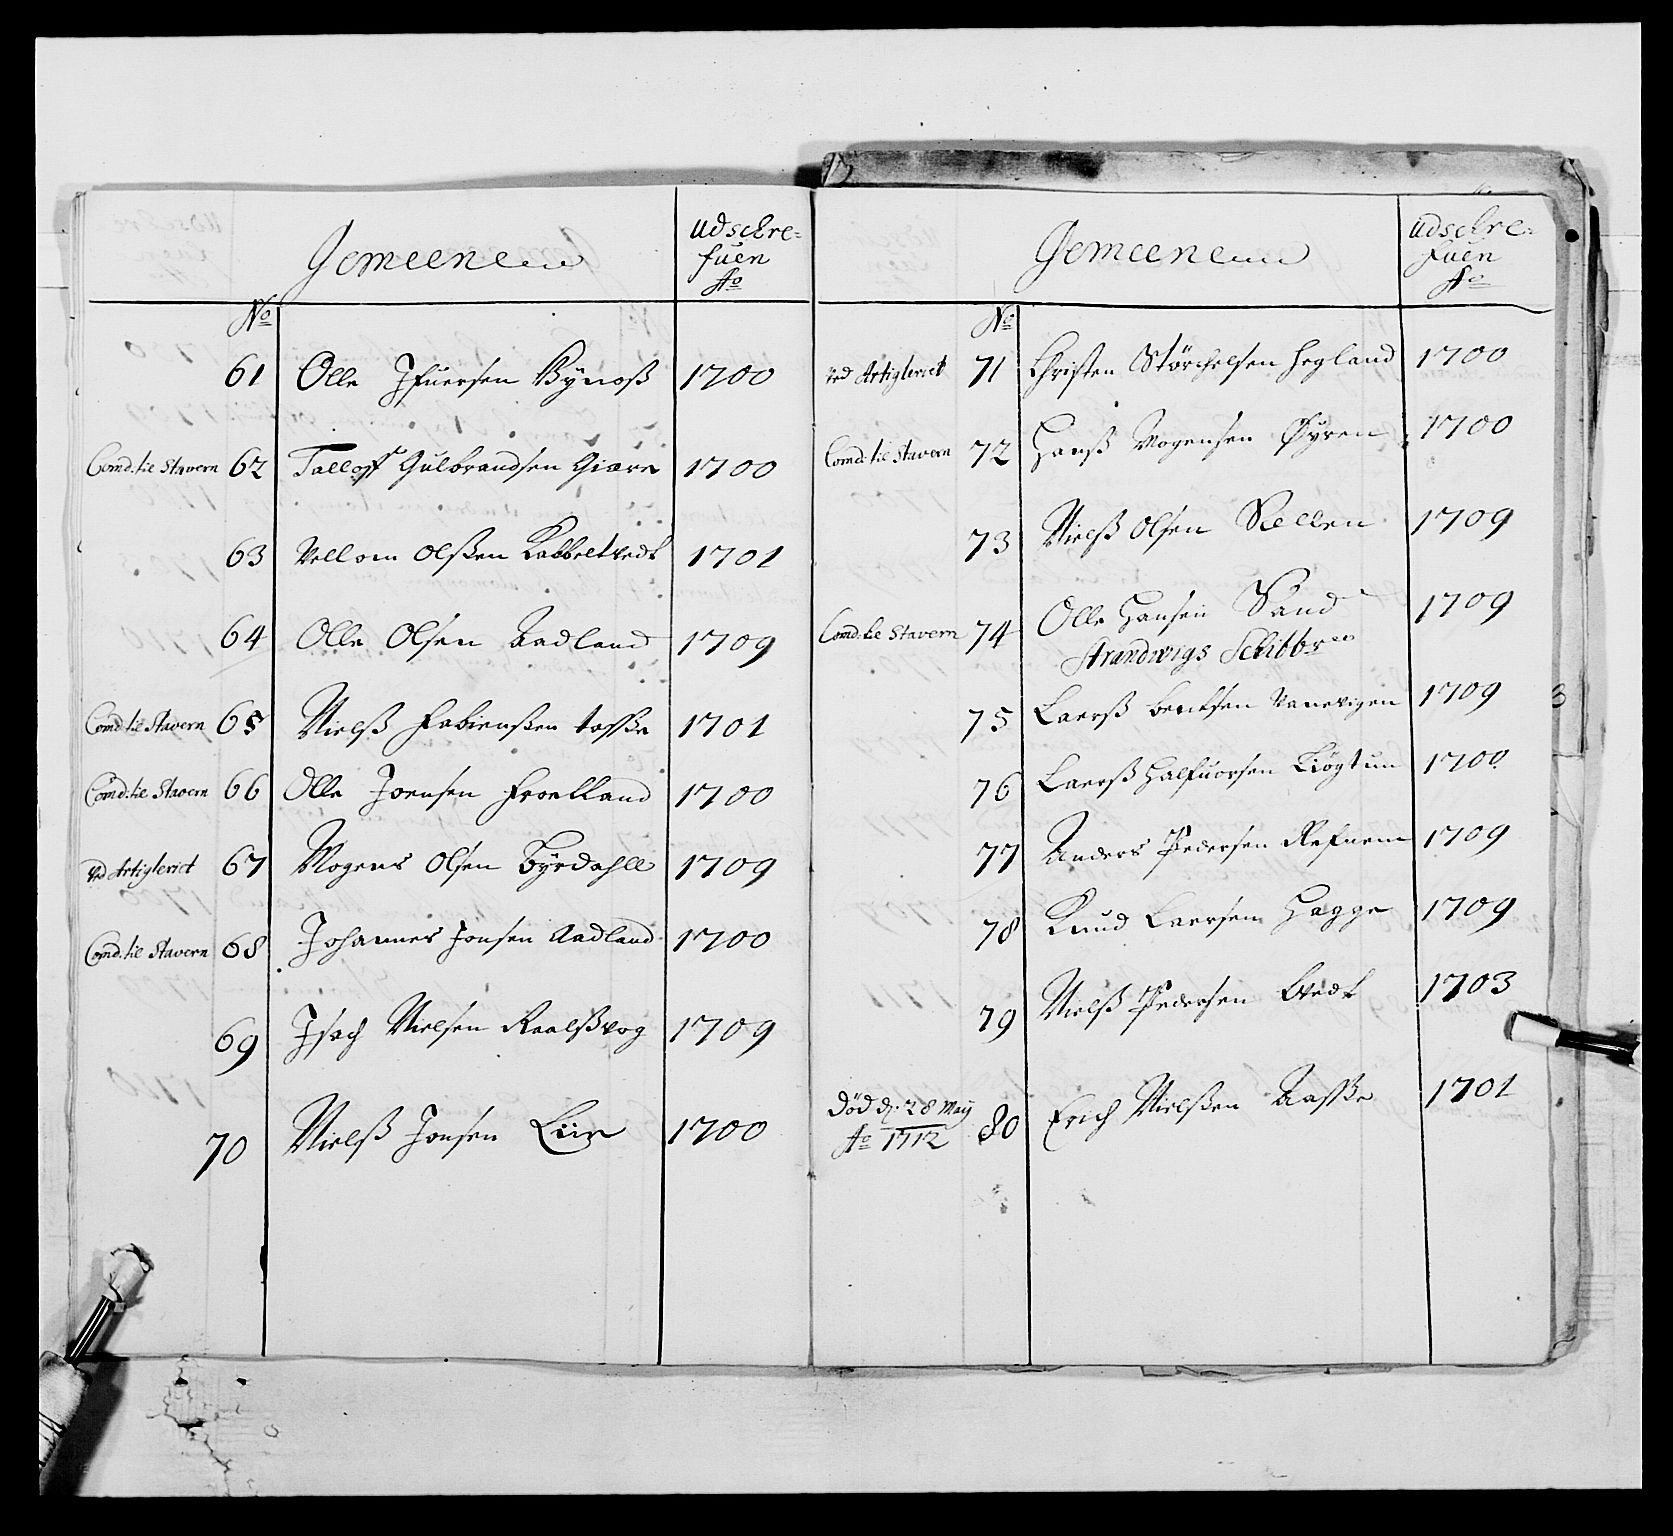 Gemeene
udschre=
fuen
Ao
No
61 Olle Jfuersen Bÿnoß 1700
Comd. til Stavern 62 Talloff Gulbrandsen Giære 1700
63 Vellom Olßen Kabbeltvedt 1701
64 Olle Olsen Aadland 1709
Comd. til Stavern 65 Nielß Fabiensßen tosske 1701
Comd. til Stavern 66 Olle Joensen Froelland 1700
ved Artigleriet 67 Mogens Olsen Bÿrdahll 1709
Comd. til Stavern 68 Johannes Jonsen Aadland 1700
69 Jsach Nielsen Raalßvog 1709
70 Nielß Jonsen Liie 1700
Gemeene
udschre=
fuen
Ao
No
ved Artigleriet 71 Christen Störchelsen Hegland 1700
Comd. til Stavern 72 Hanß Mogensen Øyren 1700
73 Nielß Olsen Sellen 1709
Comd. til Stavern 74 Olle Hansen Sand 1709
Strandwigs Schibbr
75 Laerß bentsen Vanevigen 1709
76 Laerß Halfuorsen Liøgtun 1700
77 Anders Pedersen Refnem 1709
78 Knud Laersen Hagge 1709
79 Nielß Pedersen Etvedt 1703
död d. 28 Maÿ
Ao 1712 80 Erich Nielßen Aasske 1701